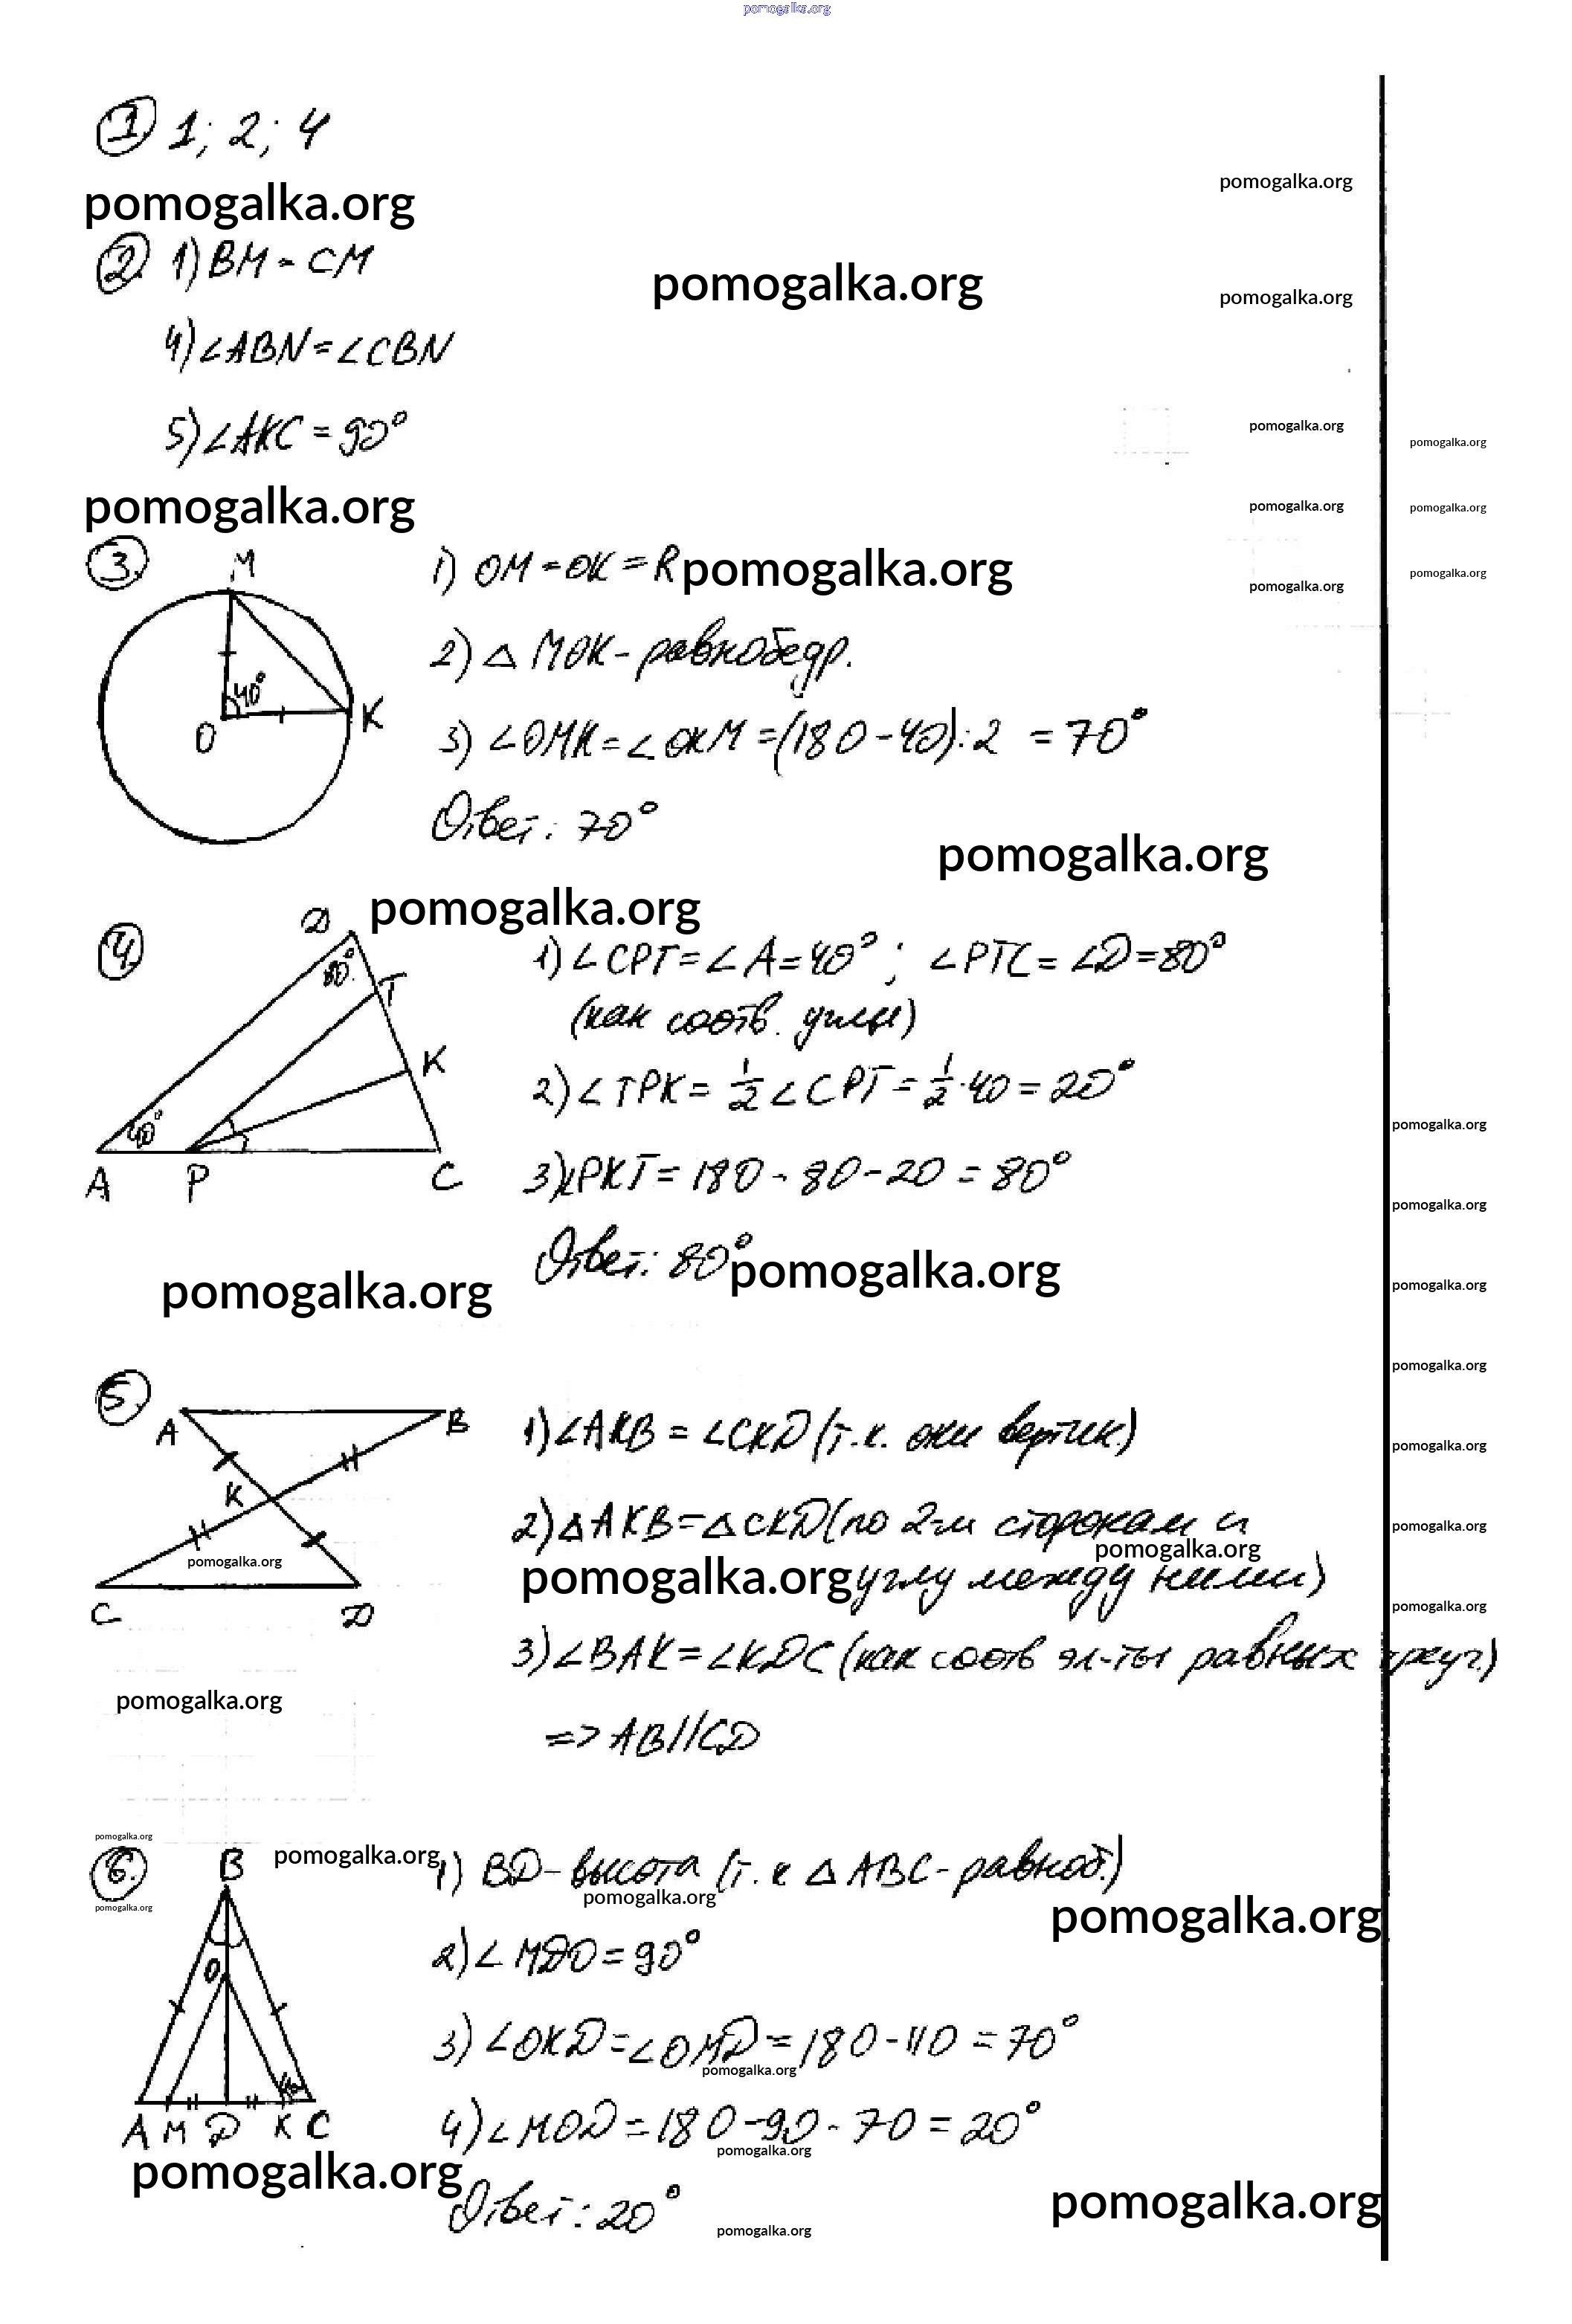 pomogalka.org
① 1; 2; 4
pomogalka.org
pomogalka.org
② 1) BM = CM
pomogalka.org
pomogalka.org
4) ∠ABN = ∠CBN
5) ∠AKC = 90°
pomogalka.org
pomogalka.org
pomogalka.org
pomogalka.org
pomogalka.org
③ M
1) OM = OK = R
pomogalka.org
pomogalka.org
pomogalka.org
2) △ MOK - равнобедр.
40°
O
K
3) ∠OMK = ∠OKM = (180 - 40) : 2 = 70°
Ответ: 70°
pomogalka.org
pomogalka.org
④ D
80°
T
K
40°
A P C
1) ∠CPT = ∠A = 40°; ∠PTC = ∠D = 80°
(как соотв. углы)
2) ∠TPK = 1/2 ∠CPT = 1/2 · 40 = 20°
pomogalka.org
3) ∠PKT = 180 - 80 - 20 = 80°
pomogalka.org
Ответ: 80°
pomogalka.org
pomogalka.org
pomogalka.org
pomogalka.org
⑤ A B
K
pomogalka.org
C D
1) ∠AKB = ∠CKD (т.к. они вертик.)
pomogalka.org
2) △AKB = △CKD (по 2-м сторонам и
pomogalka.org
pomogalka.org
pomogalka.org
углу между ними)
pomogalka.org
3) ∠BAK = ∠KDC (как соотв эл-ты равных треуг.)
pomogalka.org
=> AB//CD
pomogalka.org
⑥ B
pomogalka.org
pomogalka.org
O
A M D K C
1) BD - высота (т.к △ ABC - равноб.)
pomogalka.org
pomogalka.org
2) ∠MDO = 90°
3) ∠OKD = ∠OMD = 180 - 110 = 70°
pomogalka.org
4) ∠MOD = 180 - 90 - 70 = 20°
pomogalka.org
pomogalka.org
Ответ: 20°
pomogalka.org
pomogalka.org